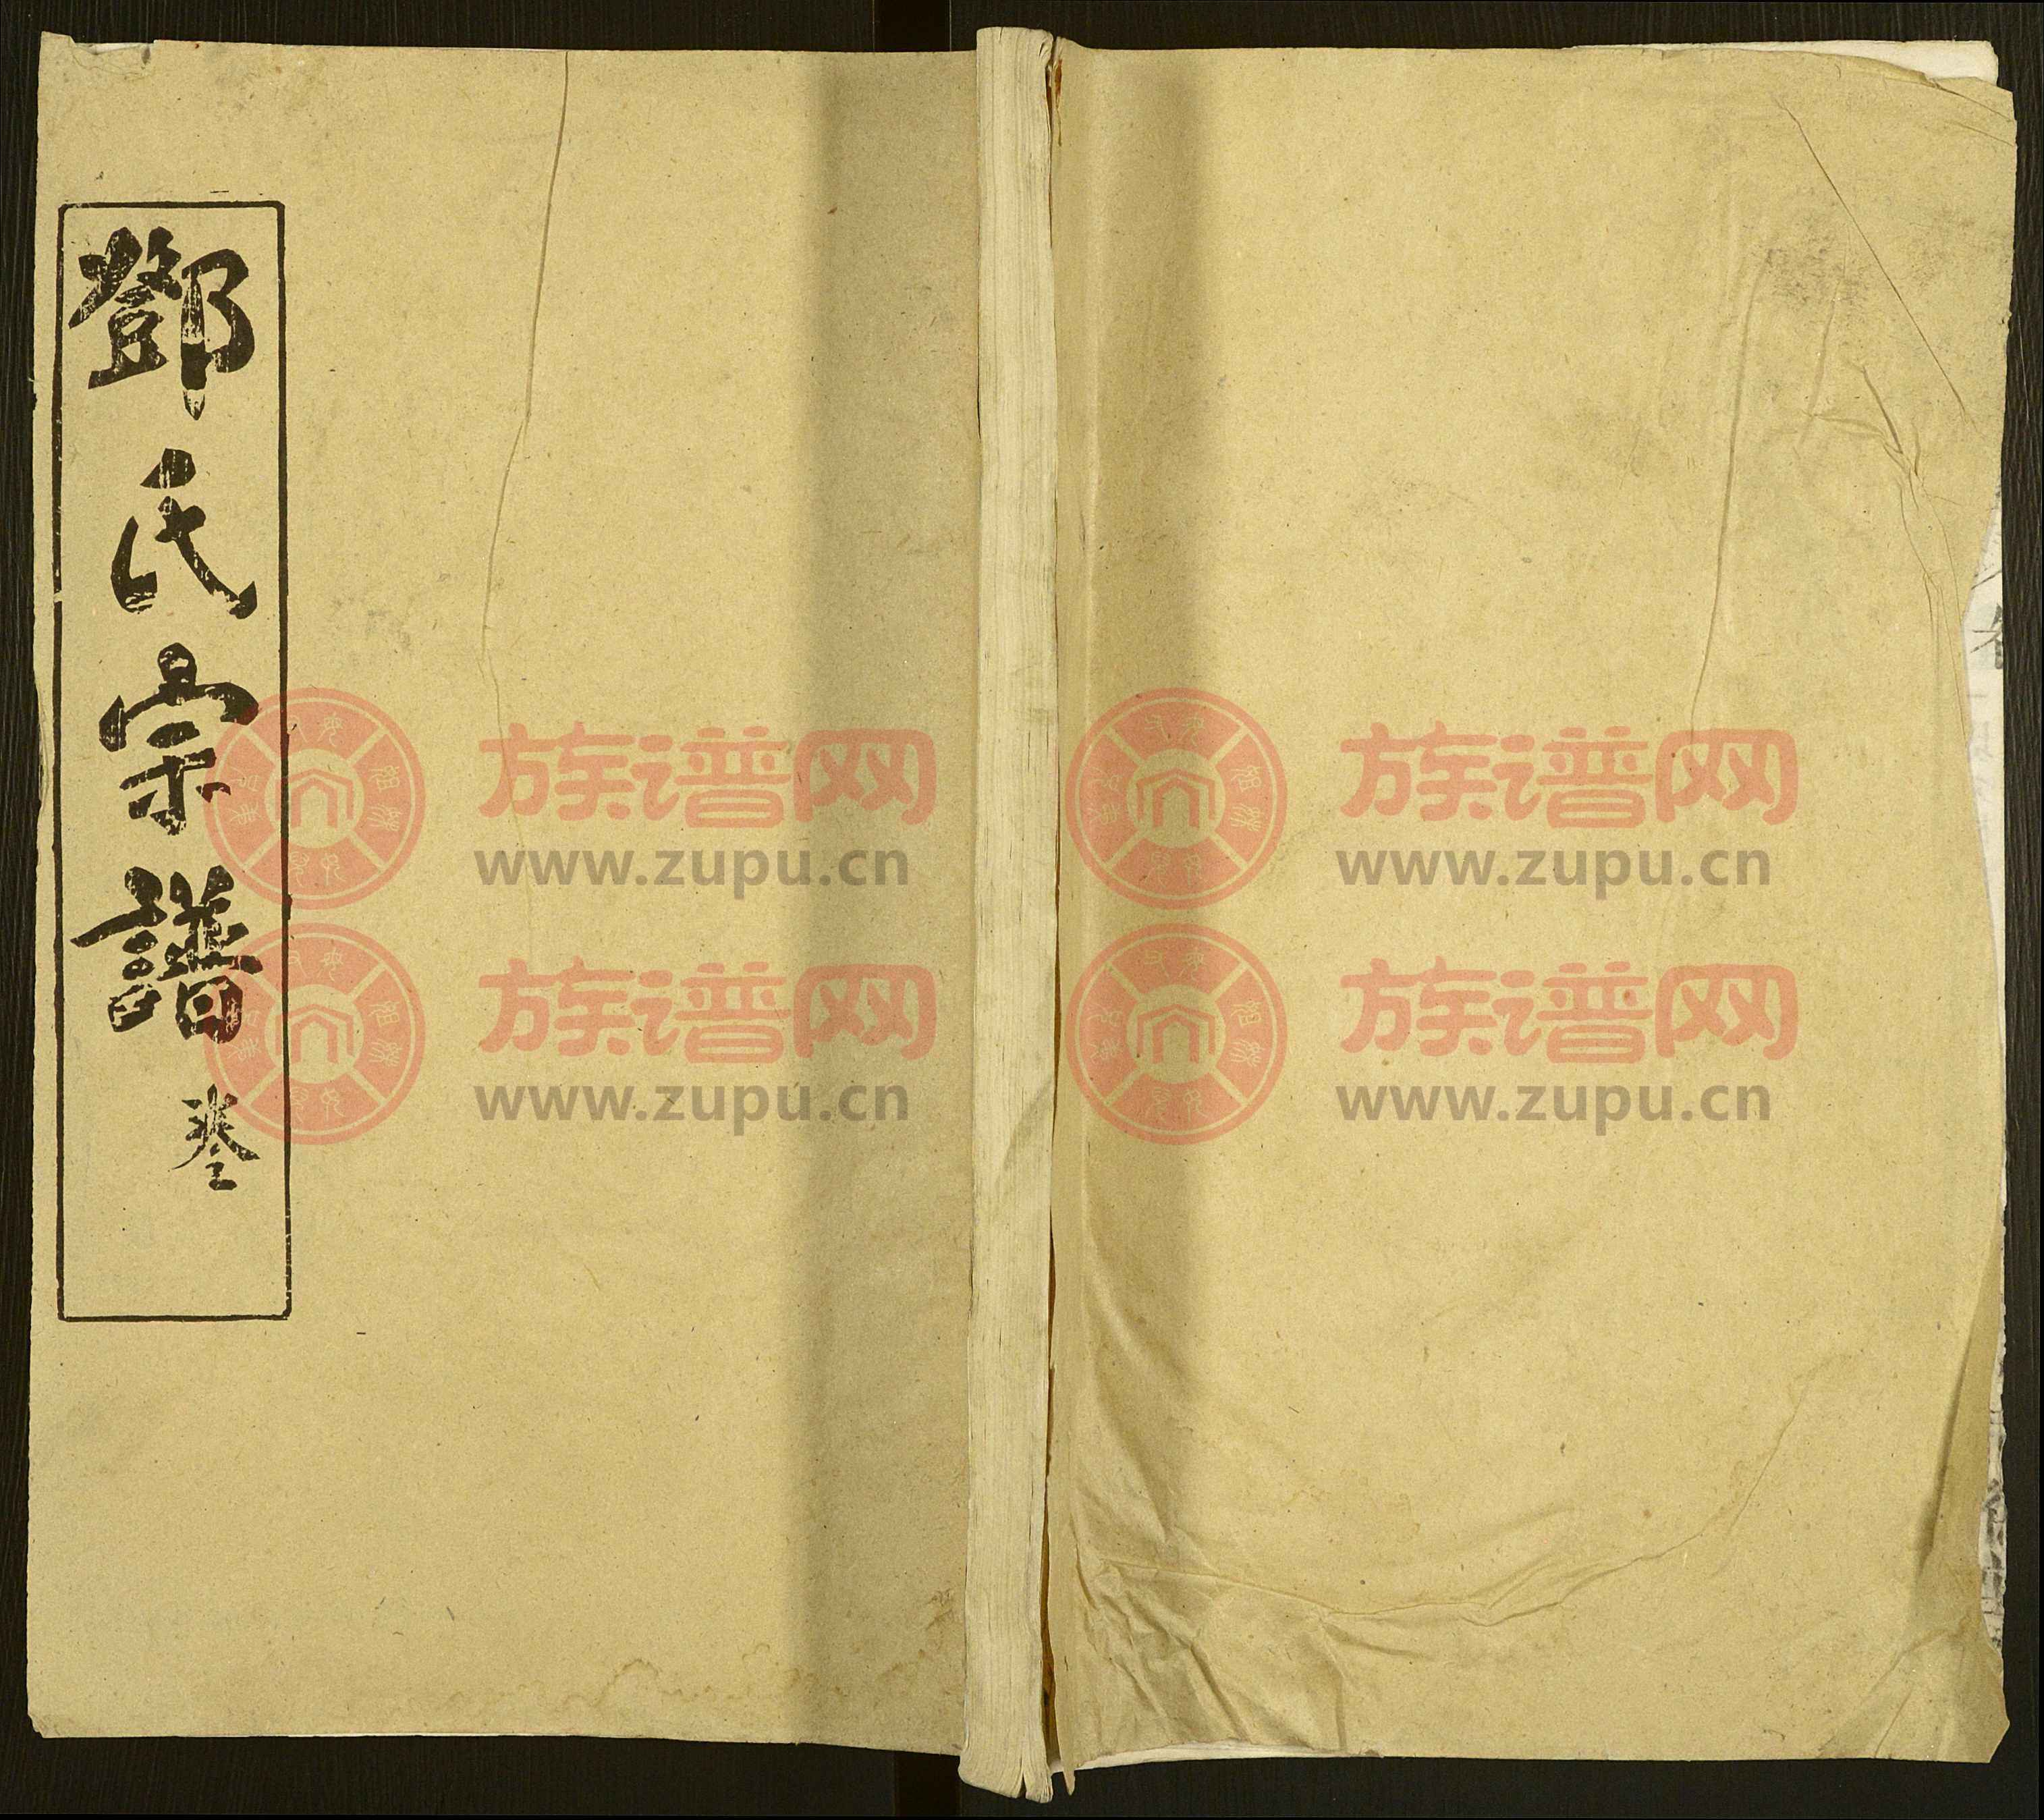 鄧氏宗譜
族谱网
www.zupu.cn
族谱网
www.zupu.cn
族谱网
www.zupu.cn
族谱网
www.zupu.cn